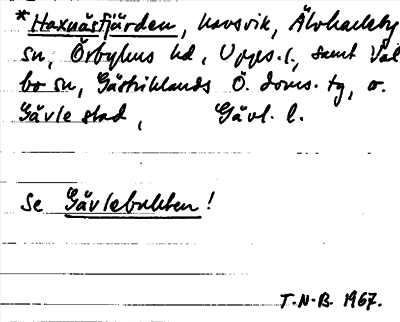 *Haxnäsfjärden, havsvik, Älvkarleby
sn, Örbyhus hd, Upps. l., samt Val
bo sn, Gästriklands Ö. doms. tg, o.
Gävle stad, Gävl. l.
Se Gävlebukten!
T.N-B. 1967.